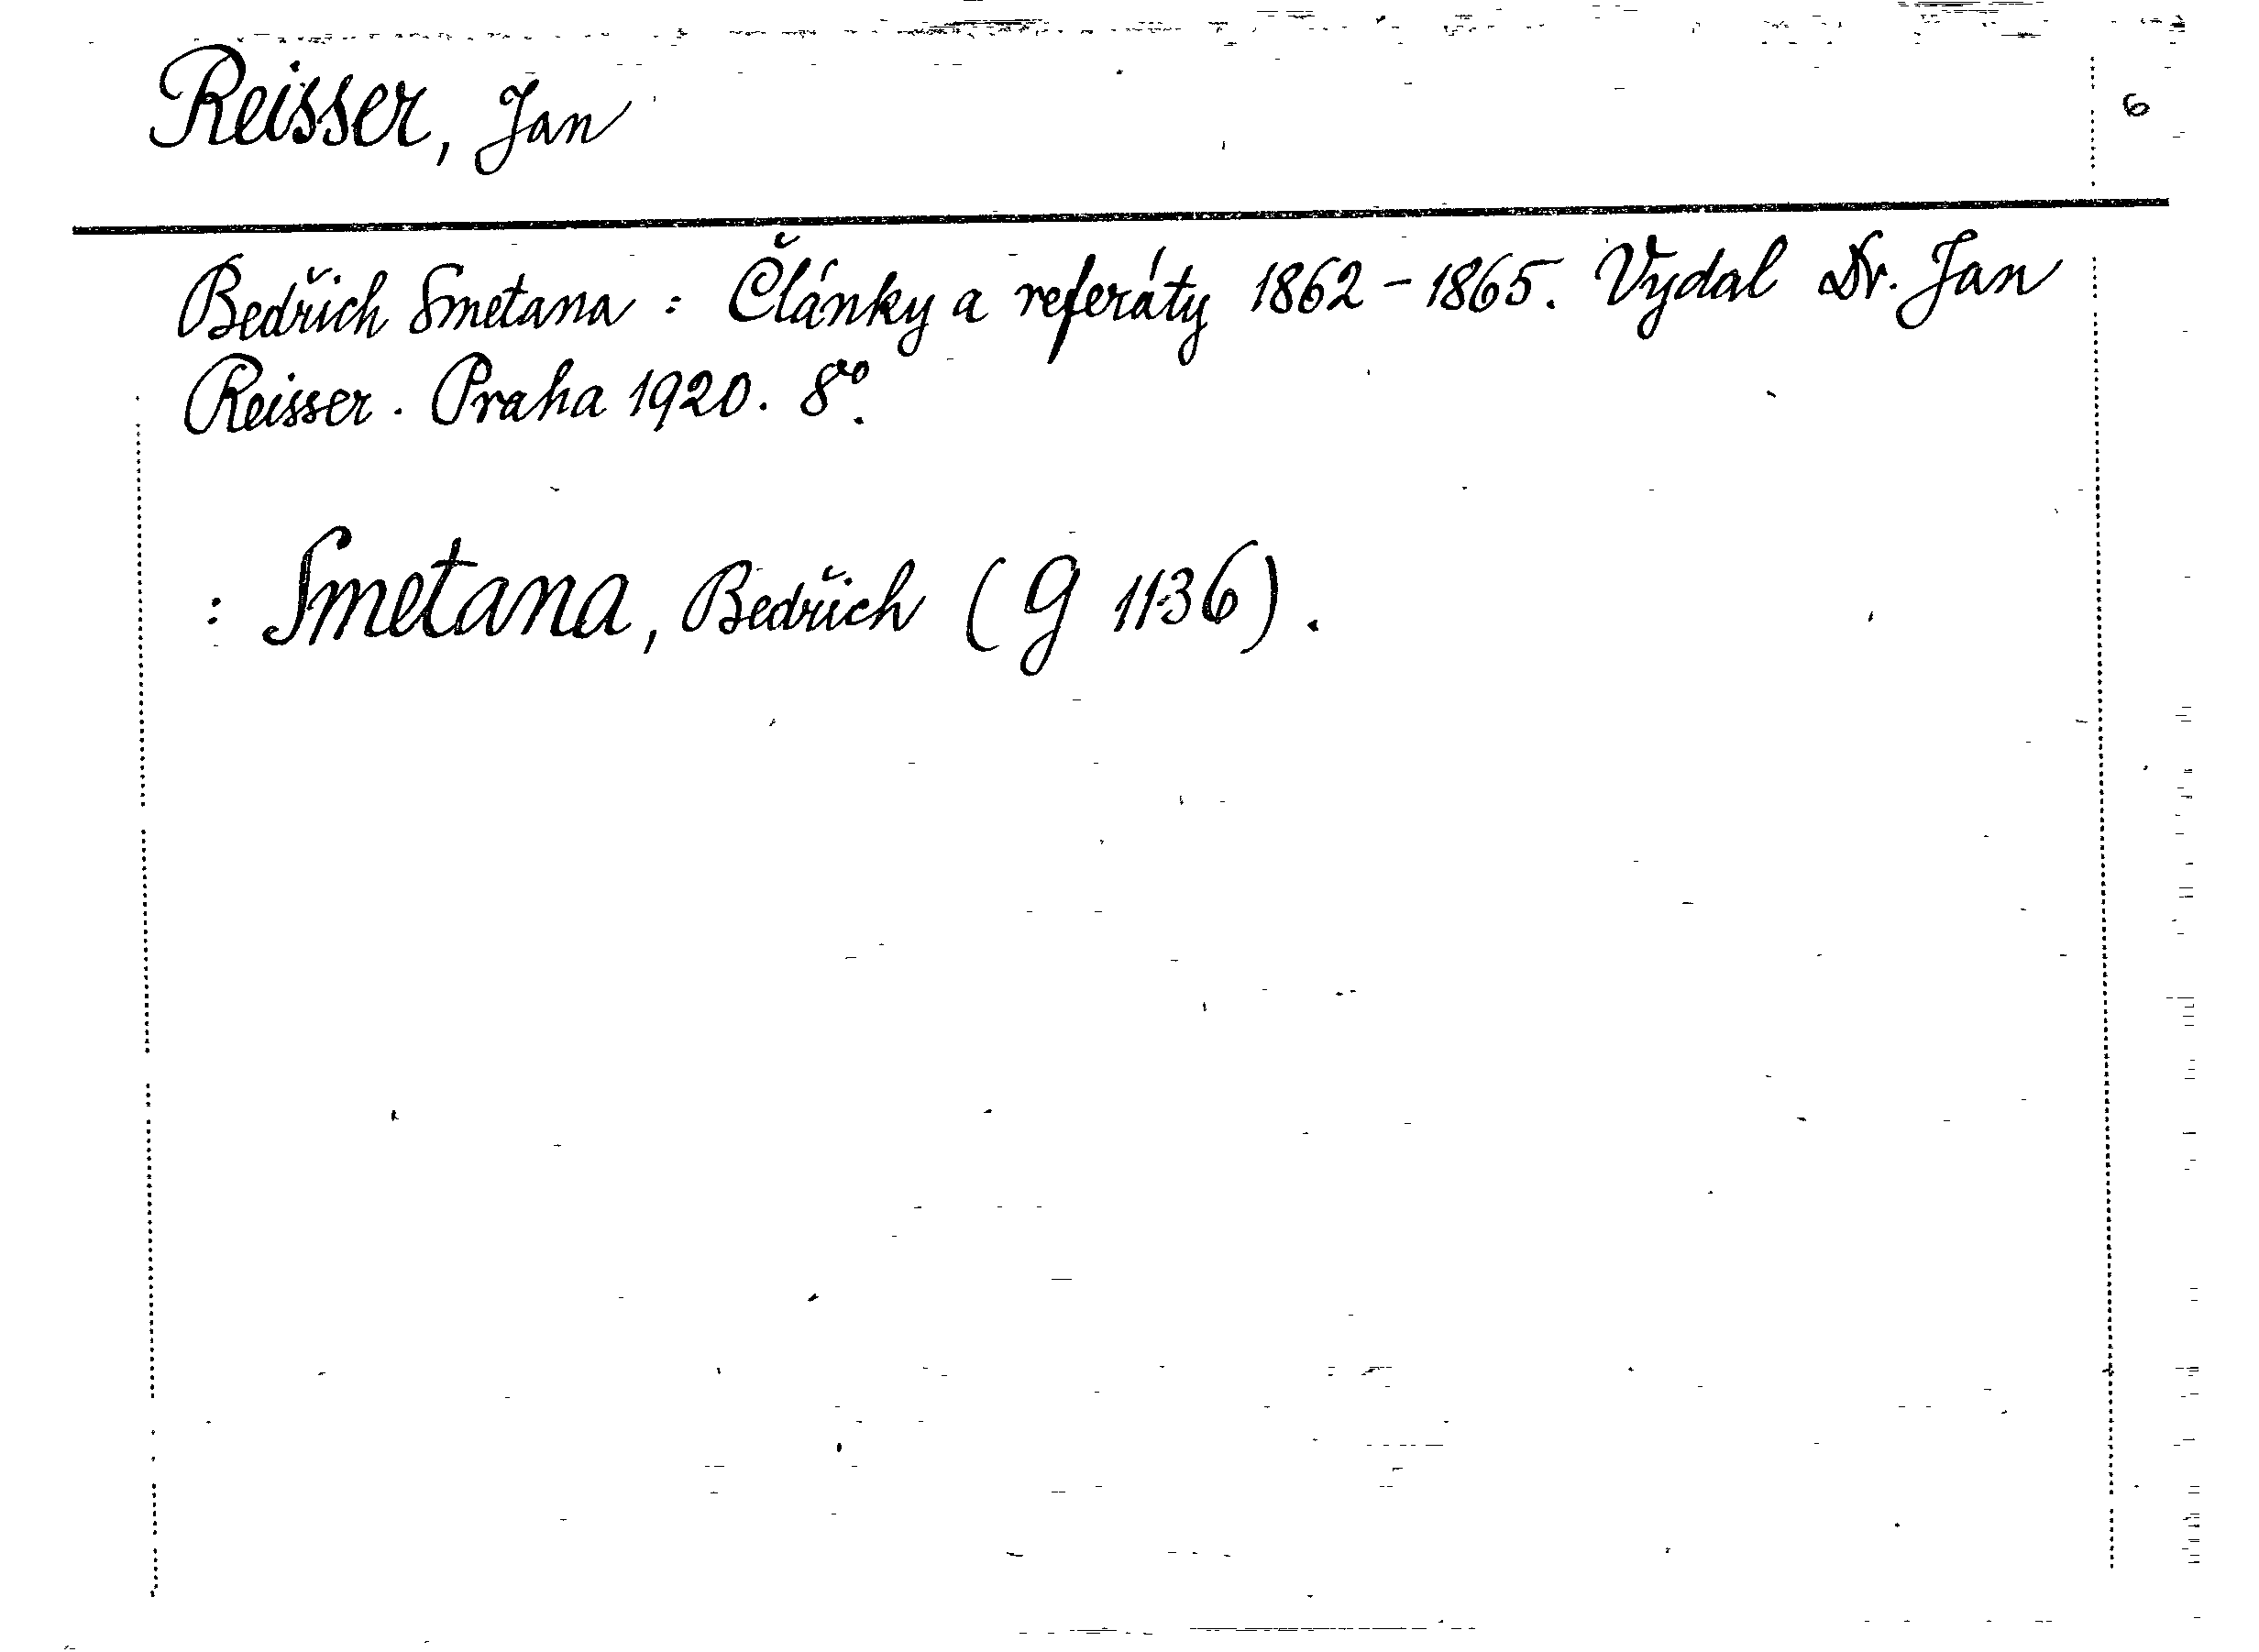 Reisser, Jan
6
Bedřich Smetana : Články a referáty 1862 - 1865. Vydal Dr. Jan
Reisser. Praha 1920. 8°.
: Smetana, Bedřich (G 1136).